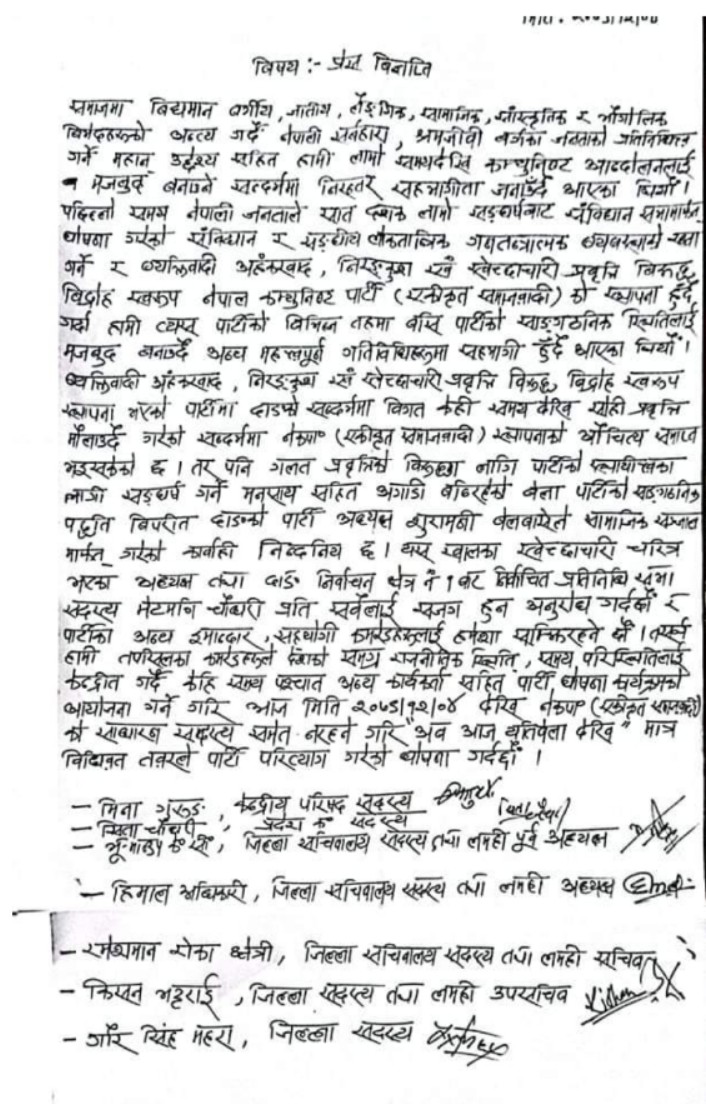 मिति : २०७९/१२/०४
विषय :- प्रेस विज्ञप्ति
समाजमा विद्यमान वर्गीय, जातीय, लैङ्गिक, सामाजिक, सांस्कृतिक र भौगोलिक
विभेदहरूको अन्त्य गर्दै नेपाली सर्वहारा, श्रमजीवी वर्गका जनताको प्रतिनिधित्व
गर्ने महान उद्देश्य सहित हामी लामो समयदेखि कम्युनिष्ट आन्दोलनलाई
मजबुद बनाउने सन्दर्भमा निरन्तर सहभागीता जनाउँदै आएका थियौं ।
पछिल्लो समय नेपाली जनताले सात दशक लामो सङ्घर्षबाट संविधान सभामार्फत
घोषणा गरेको संविधान र सङ्घीय लोकतान्त्रिक गणतन्त्रात्मक व्यवस्थाको रक्षा
गर्ने र व्यक्तिवादी अहंकारवाद, निरङ्कुश एवं स्वेच्छाचारी प्रवृत्ति विरूद्ध
विद्रोह स्वरूप नेपाल कम्युनिष्ट पार्टी (एकीकृत समाजवादी) को स्थापना हुँदै
गर्दा हामी त्यस पार्टीको विभिन्न तहमा बसि पार्टीको साङ्गठनिक स्थितिलाई
मजबुद बनाउँदै अन्य महत्त्वपूर्ण गतिविधिहरूमा सहभागी हुँदै आएका थियौं ।
व्यक्तिवादी अहंकारवाद, निरङ्कुश एवं स्वेच्छाचारी प्रवृत्ति विरूद्ध, विद्रोह स्वरूप
स्थापना भएको पार्टीमा दाङको सन्दर्भमा विगत केही समय देखि सोही प्रवृत्ति
मौलाउँदै गरेको सन्दर्भमा नेकपा (एकीकृत समाजवादी) स्थापनाको औचित्य समाप्त
भइसकेको छ । तर पनि गलत प्रवृत्तिको विरूद्धका लागि पार्टीको स्थायीत्वका
लागी सङ्घर्ष गर्ने मनसाय सहित अगाडी बढिरहेको बेला पार्टीको सङ्गठनिक
पद्धति विपरीत दाङको पार्टी अध्यक्ष शुरामणी बेलबासेले सामाजिक सञ्जाल
मार्फत गरेको कार्वाही निन्दनिय छ । यस खालका स्वेच्छाचारी चरित्र
भएका अध्यक्ष तथा दाङ निर्वाचन क्षेत्र नं १ बाट निर्वाचित प्रतिनिधि सभा
सदस्य मेटमणि चौधरी प्रति सबैलाई सजग हुन अनुरोध गर्दछौं र
पार्टीका अन्य इमान्दार, सहयोगी कमरेडहरूलाई हमेशा सम्झिरहने छौं ।
हामी तपसिलका कमरेडहरूले देशको समग्र राजनीतिक स्थिति, समय परिस्थितिलाई
केन्द्रीत गर्दै केहि समय पश्चात अन्य कार्यकर्ता सहित पार्टी घोषणा कार्यक्रमको
आयोजना गर्ने गरि आज मिति २०७९/१२/०४ देखि नेकपा (एकीकृत समाजवादी)
को साधारण सदस्य समेत नरहने गरि "अब आज यतिबेला देखि" मात्र
विधिवत तवरले पार्टी परित्याग गरेको घोषणा गर्दछौं ।
– मिना गुरूङ, केन्द्रीय परिषद सदस्य
– स्मिता चौधरी, प्रदेश क. सदस्य
– जिल्ला सचिवालय सदस्य तथा लमही पूर्व अध्यक्ष
– हिमाल अधिकारी, जिल्ला सचिवालय सदस्य तथा लमही अध्यक्ष
– रमेशमान रोका क्षेत्री, जिल्ला सचिवालय सदस्य तथा लमही सचिव
– किसन भट्टराई, जिल्ला सदस्य तथा लमही उपसचिव Kishan
– गौर सिंह महरा, जिल्ला सदस्य